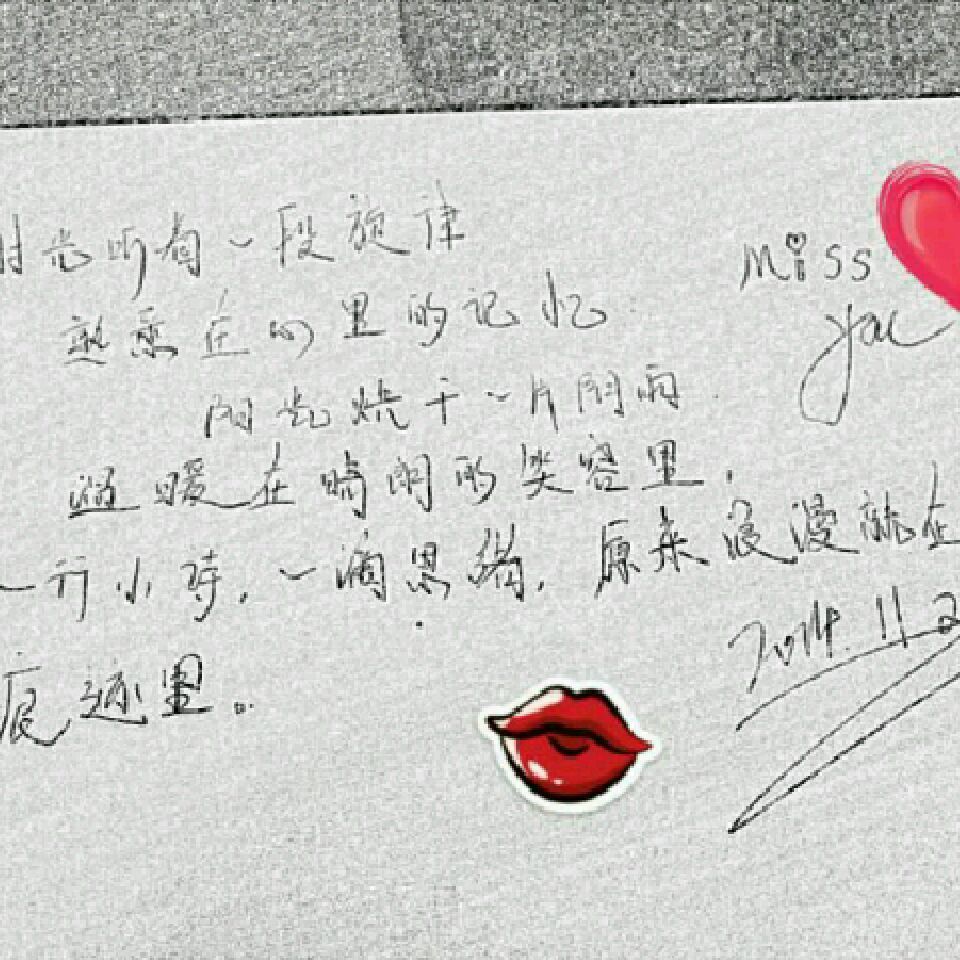 时光听有一段旋律
在心里的记忆
阳光烧干一片阴雨
温暖在晴朗的笑容里.
一行小诗.一滴思绪.原来浪漫就在
痕迹里。
Miss
you
2014.11.2